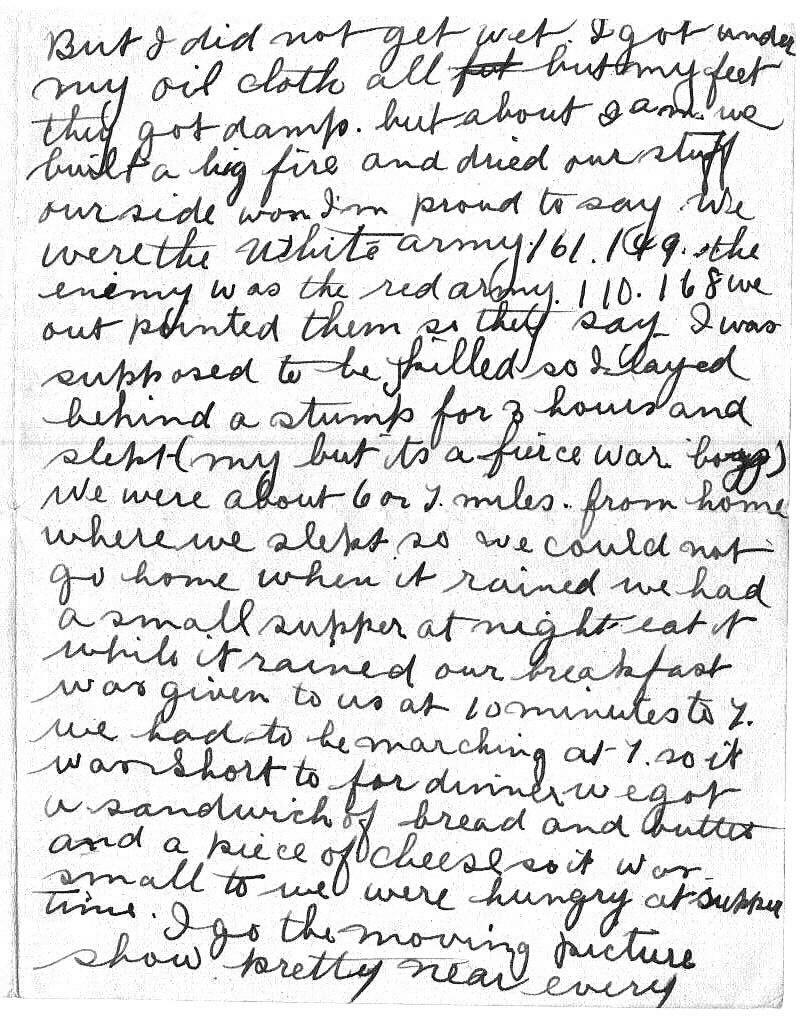 But I did not get wet. I got under
my oil cloth all but my feet
they got damp. but about 2 a m. we
built a big fire and dried our stuff
our side won I'm proud to say. We
were the White army. 161. 149. the
enemy was the red army. 110. 168 we
out pointed them so they say I was
supposed to be killed so I layed
behind a stump for 3 hours and
slept (my but its a fierce war boys)
We were about 6 or 7. miles. from home
where we slept so we could not
go home when it rained we had
a small supper at night eat it
while it rained our breakfast
was given to us at 10 minutes to 7.
we had to be marching at 7. so it
was short to for dinner we got
a sandwich of bread and butter
and a piece of cheese so it was
small to we were hungry at supper
time. I go the moving picture
show pretty near every